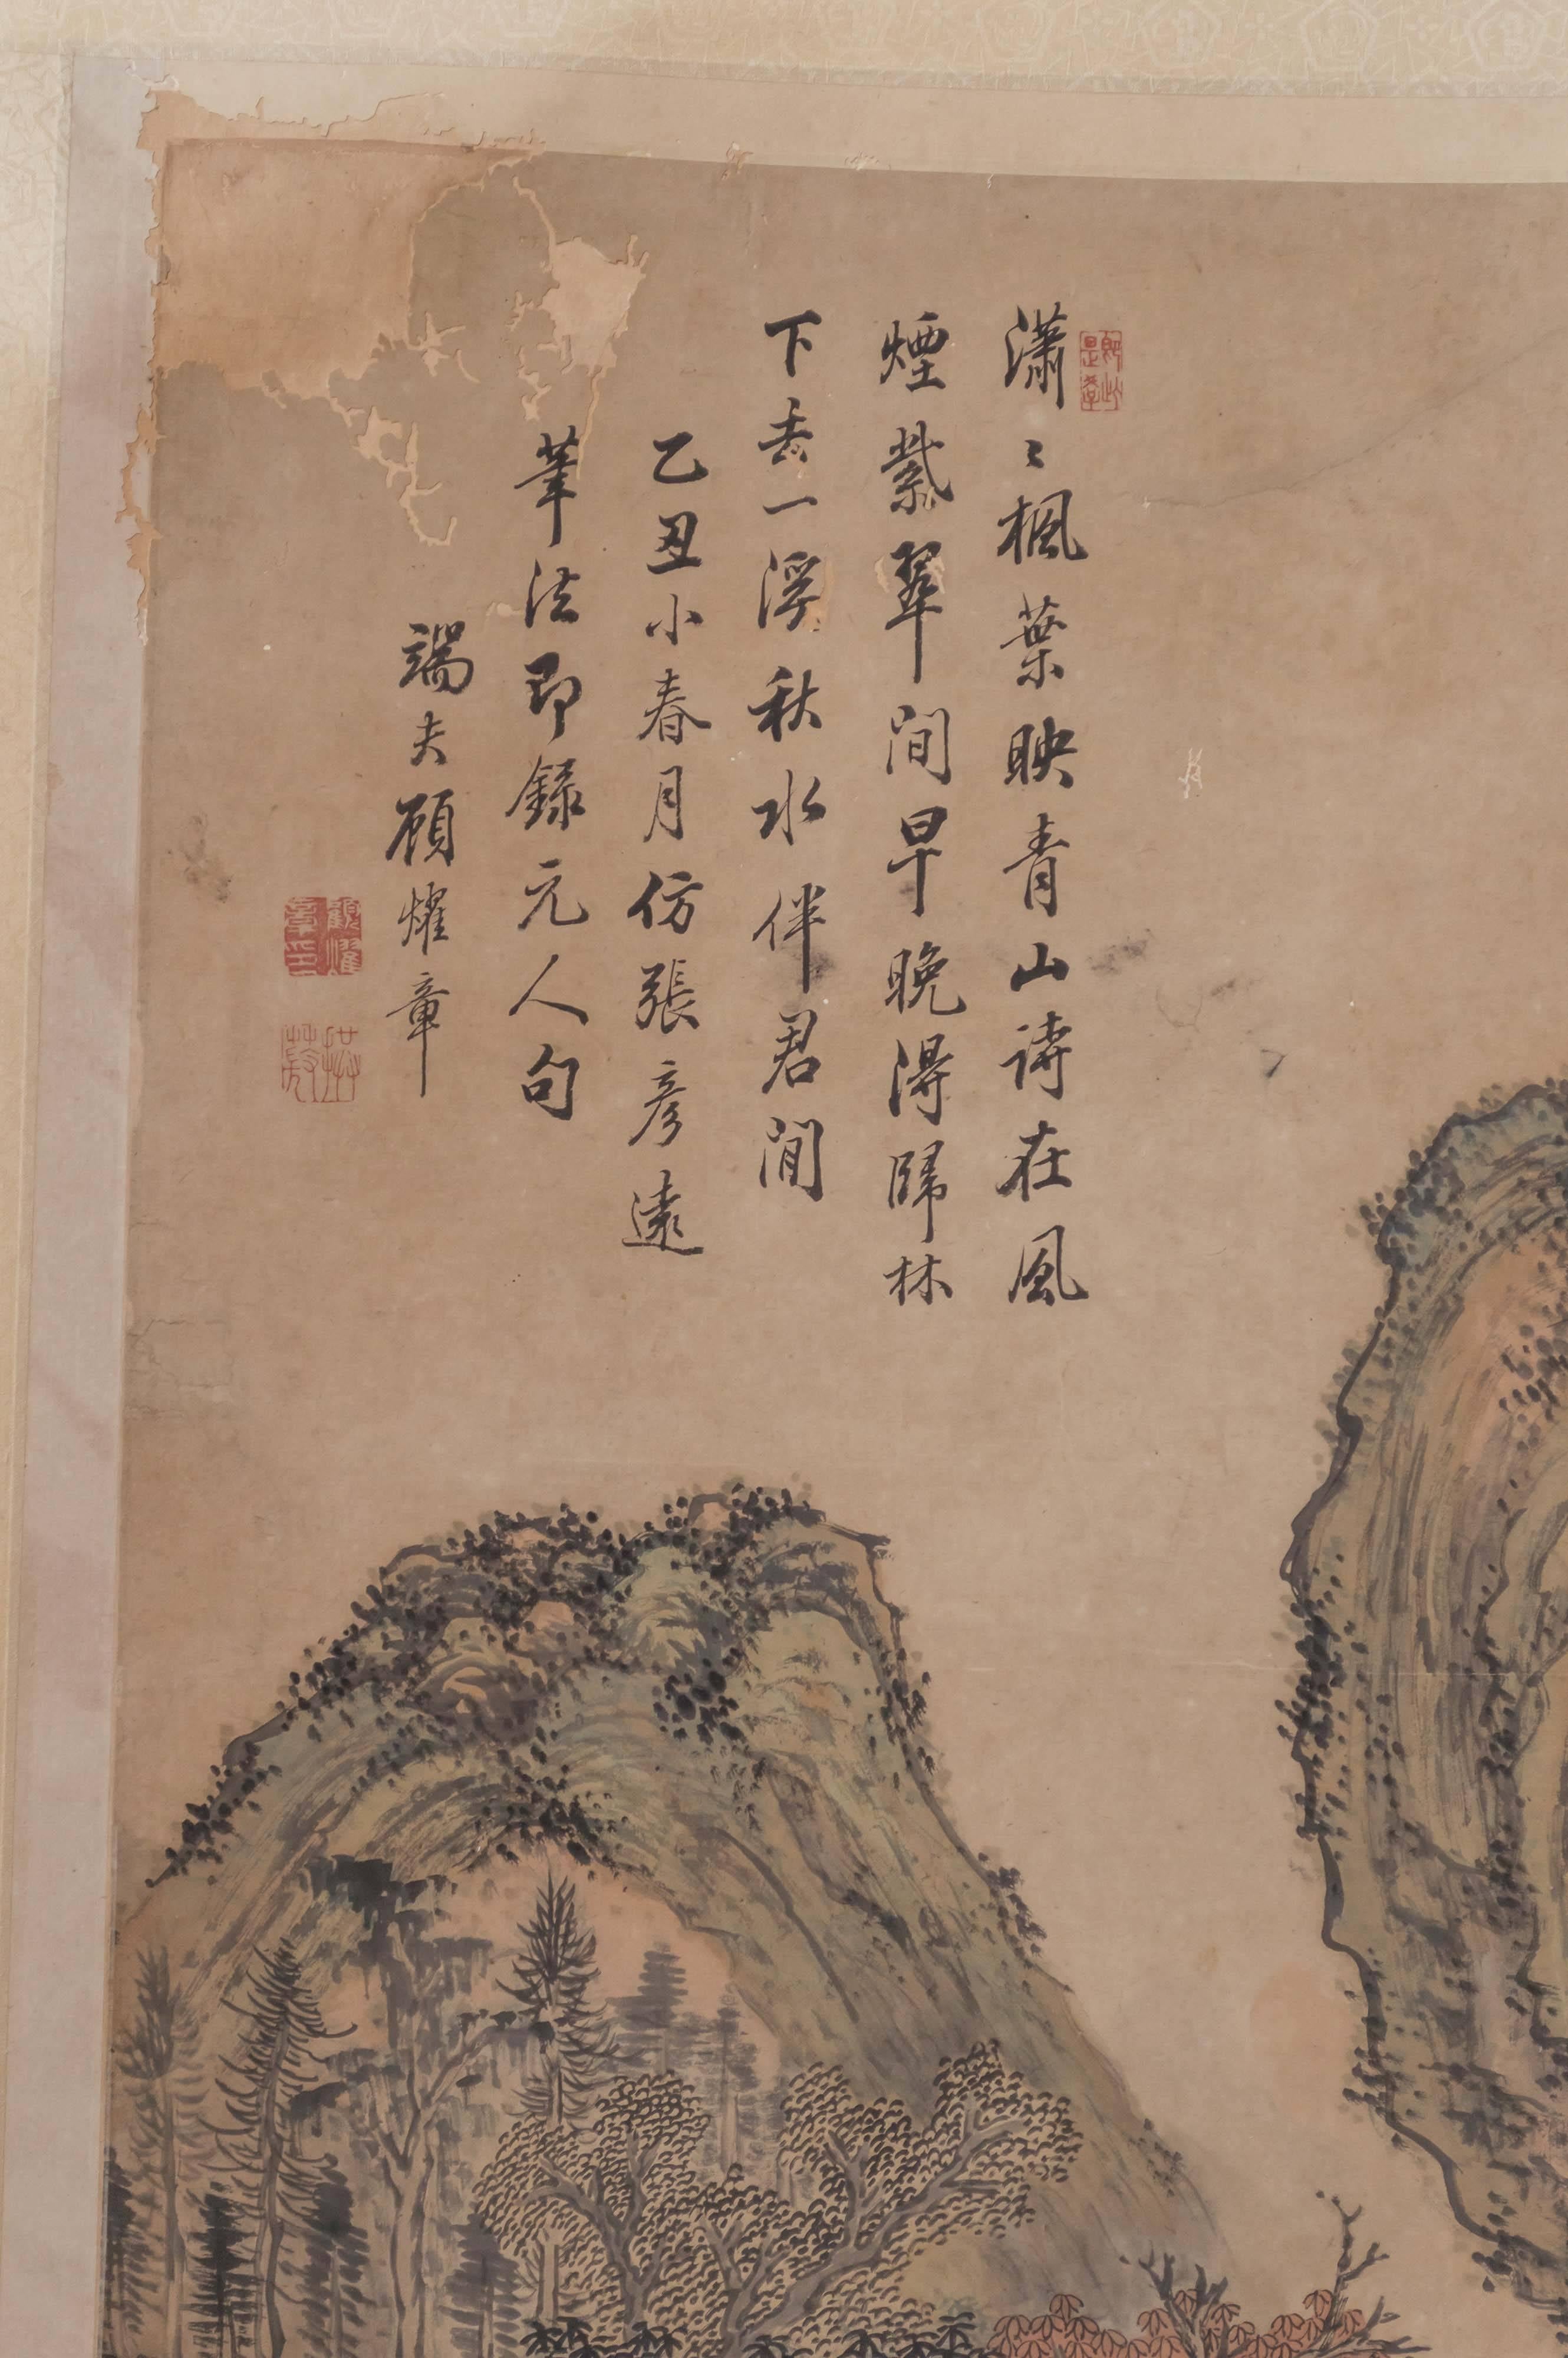 瀟〻楓葉映青山詩在風
煙紫翠間早晚得歸林
下去一溪秋水伴君閒
乙丑小春月仿張彥遠
筆法即錄元人句
端夫顧燿章
顧燿章印